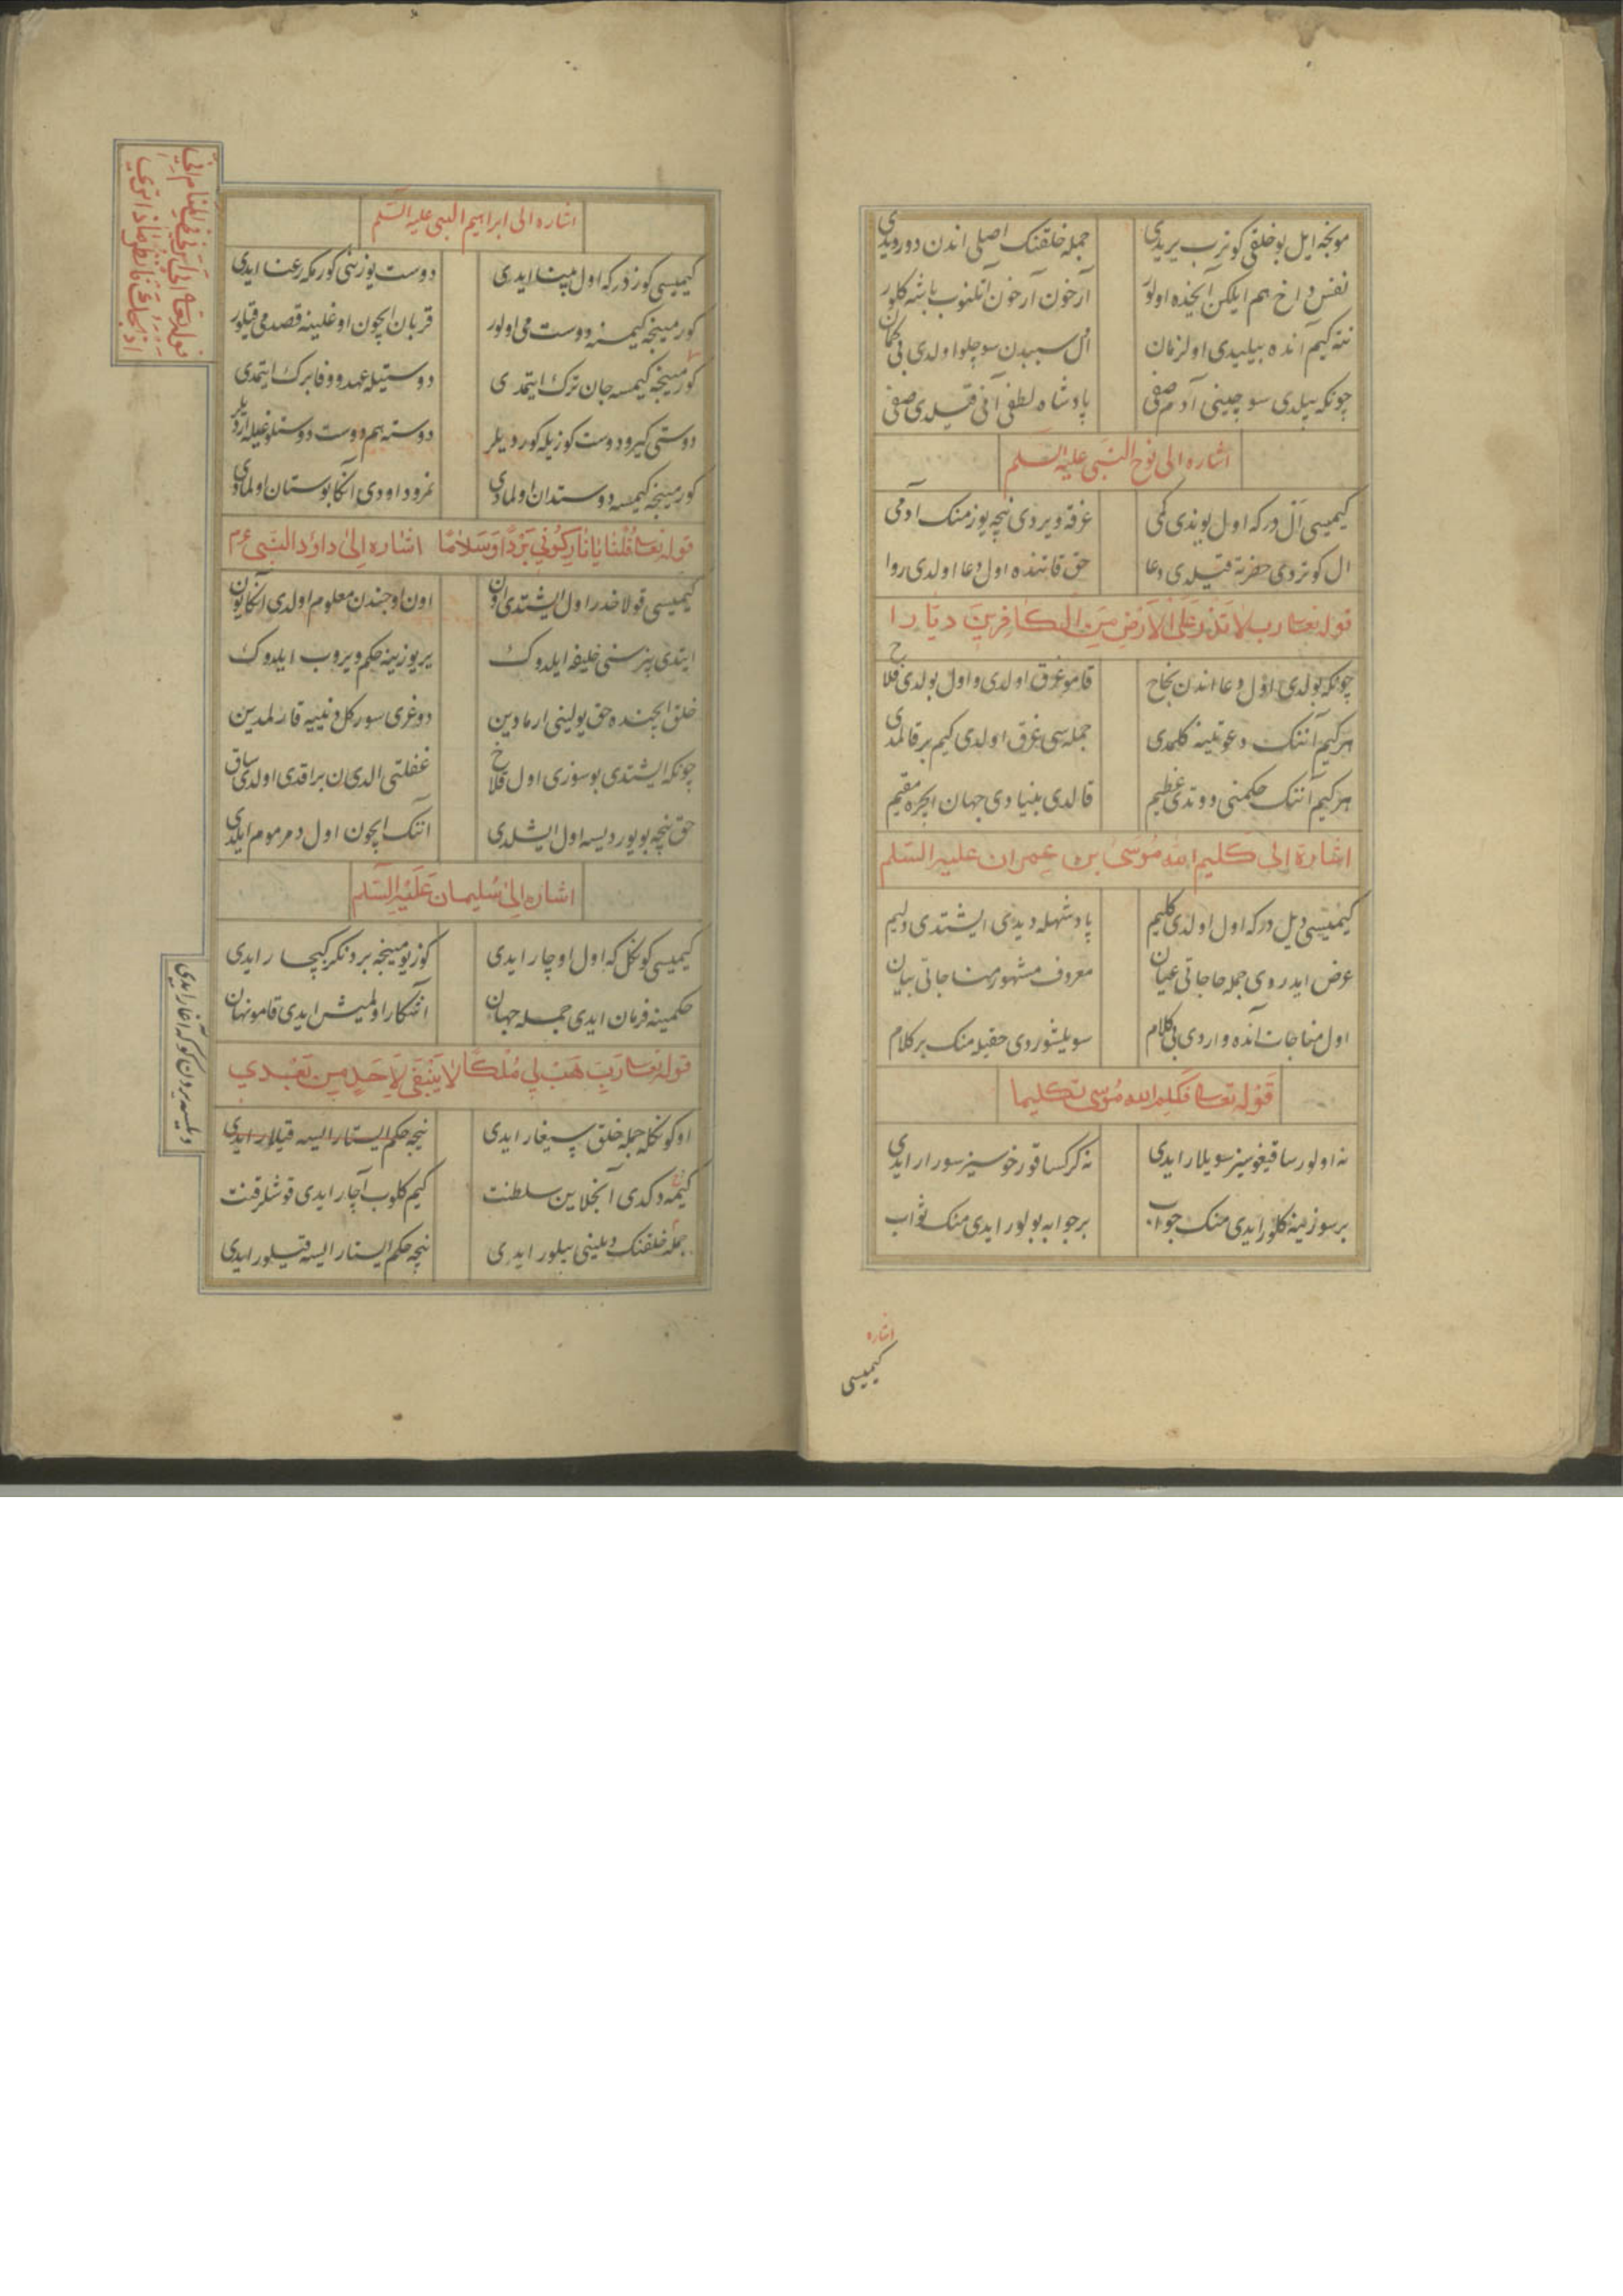 مونجه ایل بو خلقی کوترب یریدی جمله خلقنک اصلی اندن دورودی
نفس داخ هم ایلکن ایچنده اولور آرخون آرخون آتلنوب باشه کلور
نته کیم آنده بیلیدی اول زمان ال سببدن سوچلو اولدی بی کمان
چونکه بیلدی سوچینی آدم صفی پادشاه لطفی آنی قیلدی صفی
اشاره الی نوح النبی علیه السلم
کیمیسی ال در که اول یوندی کمی غرقه ویردی نیچه یوز منک آدمی
ال کوتردی حضرته قیلدی دعا حق قاتنده اول دعا اولدی روا
قوله تعالی رب لا تذر علی الارض من الکافرین دیارا
چونکه بولدی اول دعا اندن نجاح قامو غرق اولدی و اول بولدی فلاح
هر کیم آننک دعوتینه کلمدی جمله سی غرق اولدی کیم بر قالمدی
هر کیم آننک حکمنی دوتدی عظیم قالدی بنیادی جهان ایچره مقیم
اشارة الی کلیم الله موسی بن عمران علیه السلم
کیمیسی دیل در که اول اولدی کلیم پادشهله دیدی ایشتدی دلیم
عرض ایدردی جمله حاجاتی عیان معروف مشهور مناجاتی بیان
اول مناجات آنده واردی بی کلام سویلشوردی حقیله منک بر کلام
قوله تعالی فکلم الله موسی تکلیما
نه اولورسا قیغوسیز سویلار ایدی نه کرکسا قورخوسیز سورار ایدی
بر سوزینه کلور ایدی منک جواب بر جوابه بولور ایدی منک ثواب
اشاره
کیمیسی
اشاره الی ابراهیم النبی علیه السلم
کیمیسی کوزدر که اول مبتلا ایدی دوست یوزینی کورمکه رعنا ایدی
کورمینجه کیمسنه دوست می اولور قربان ایچون اوغلینه قصد می قیلور
کورمینجه کیمسه جان ترک ایتمدی دوستیله عهد و وفا برک ایتمدی
دوستی کیرو دوست کوزیله کوردیلر دوسته هم دوست دوستلوغیله اردیلر
کورمینجه کیمسه دوستدان اولمادی نمرود اودی آنکا بوستان اولمادی
قوله تعالی قلنا یا نار کونی بردا و سلاما اشاره الی داود النبی عم
کیمیسی قولاخدر اول ایشتدی اون اون اوجندن معلوم اولدی آنکا یون
ایتدی بیز سنی خلیفه ایلدوک یر یوزینه حکم ویروب ایلدوک
خلق ایچنده حق یولینی ارمادین دوغری سور کل دنییه قارلمدین
چونکه ایشتدی بو سوزی اول فلاخ غفلتی الدی ن براقدی اولدی ساق
حق نیچه بویوردیسه اول ایشلدی آننک ایچون اول دمر موم ایلدی
اشاره الی سلیمان علیه السلم
کیمیسی کونکل که اول اوچار ایدی کوز یومینجه بر دنکز کیچار ایدی
حکمینه فرمان ایدی جمله جهان آشکارا اولمیش ایدی قامو نهان
قوله تعالی رب هب لی ملکا لا ینبغی لاحد من بعدی
او کونکله جمله خلق سیغار ایدی نیجه حکم ایستار ایسه قیلار ایدی
کیمه دکدی آنجلاین سلطنت کیم کلوب آچار ایدی قوشلر قنت
جمله خلقنک دیلینی بیلور ایدی نیجه حکم ایستار ایسه قیلور ایدی
قوله تعالی انی اری فی المنام انی
اذبحک فانظر ماذا تری
دیلیسه یردن کوکه آغار ایدی